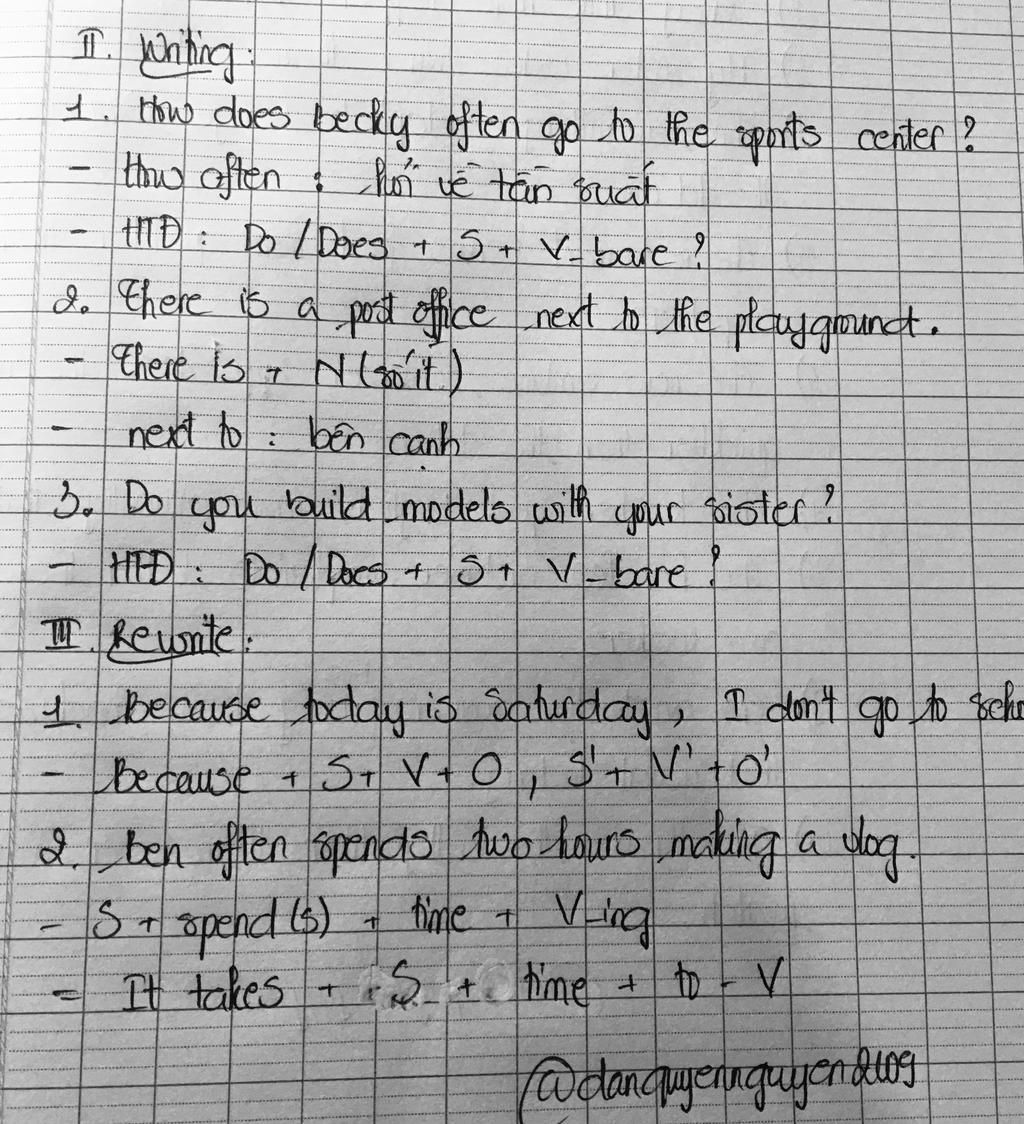 II. Writing:
1. How does becky often go to the sports center?
- How often : hỏi về tần suất
- HTĐ : Do / Does + S + V-bare?
2. There is a post office next to the playground.
- There is + N (số ít)
- next to : bên cạnh
3. Do you build models with your sister?
- HTĐ : Do / Does + S + V-bare?
III. Rewrite:
1. Because today is Saturday, I don't go to scho
- Because + S + V + O, S' + V' + O'
2. ben often spends two hours making a vlog.
- S + spend(s) + time + V-ing
- It takes + S + time + to - V
@danquyennguyen2109